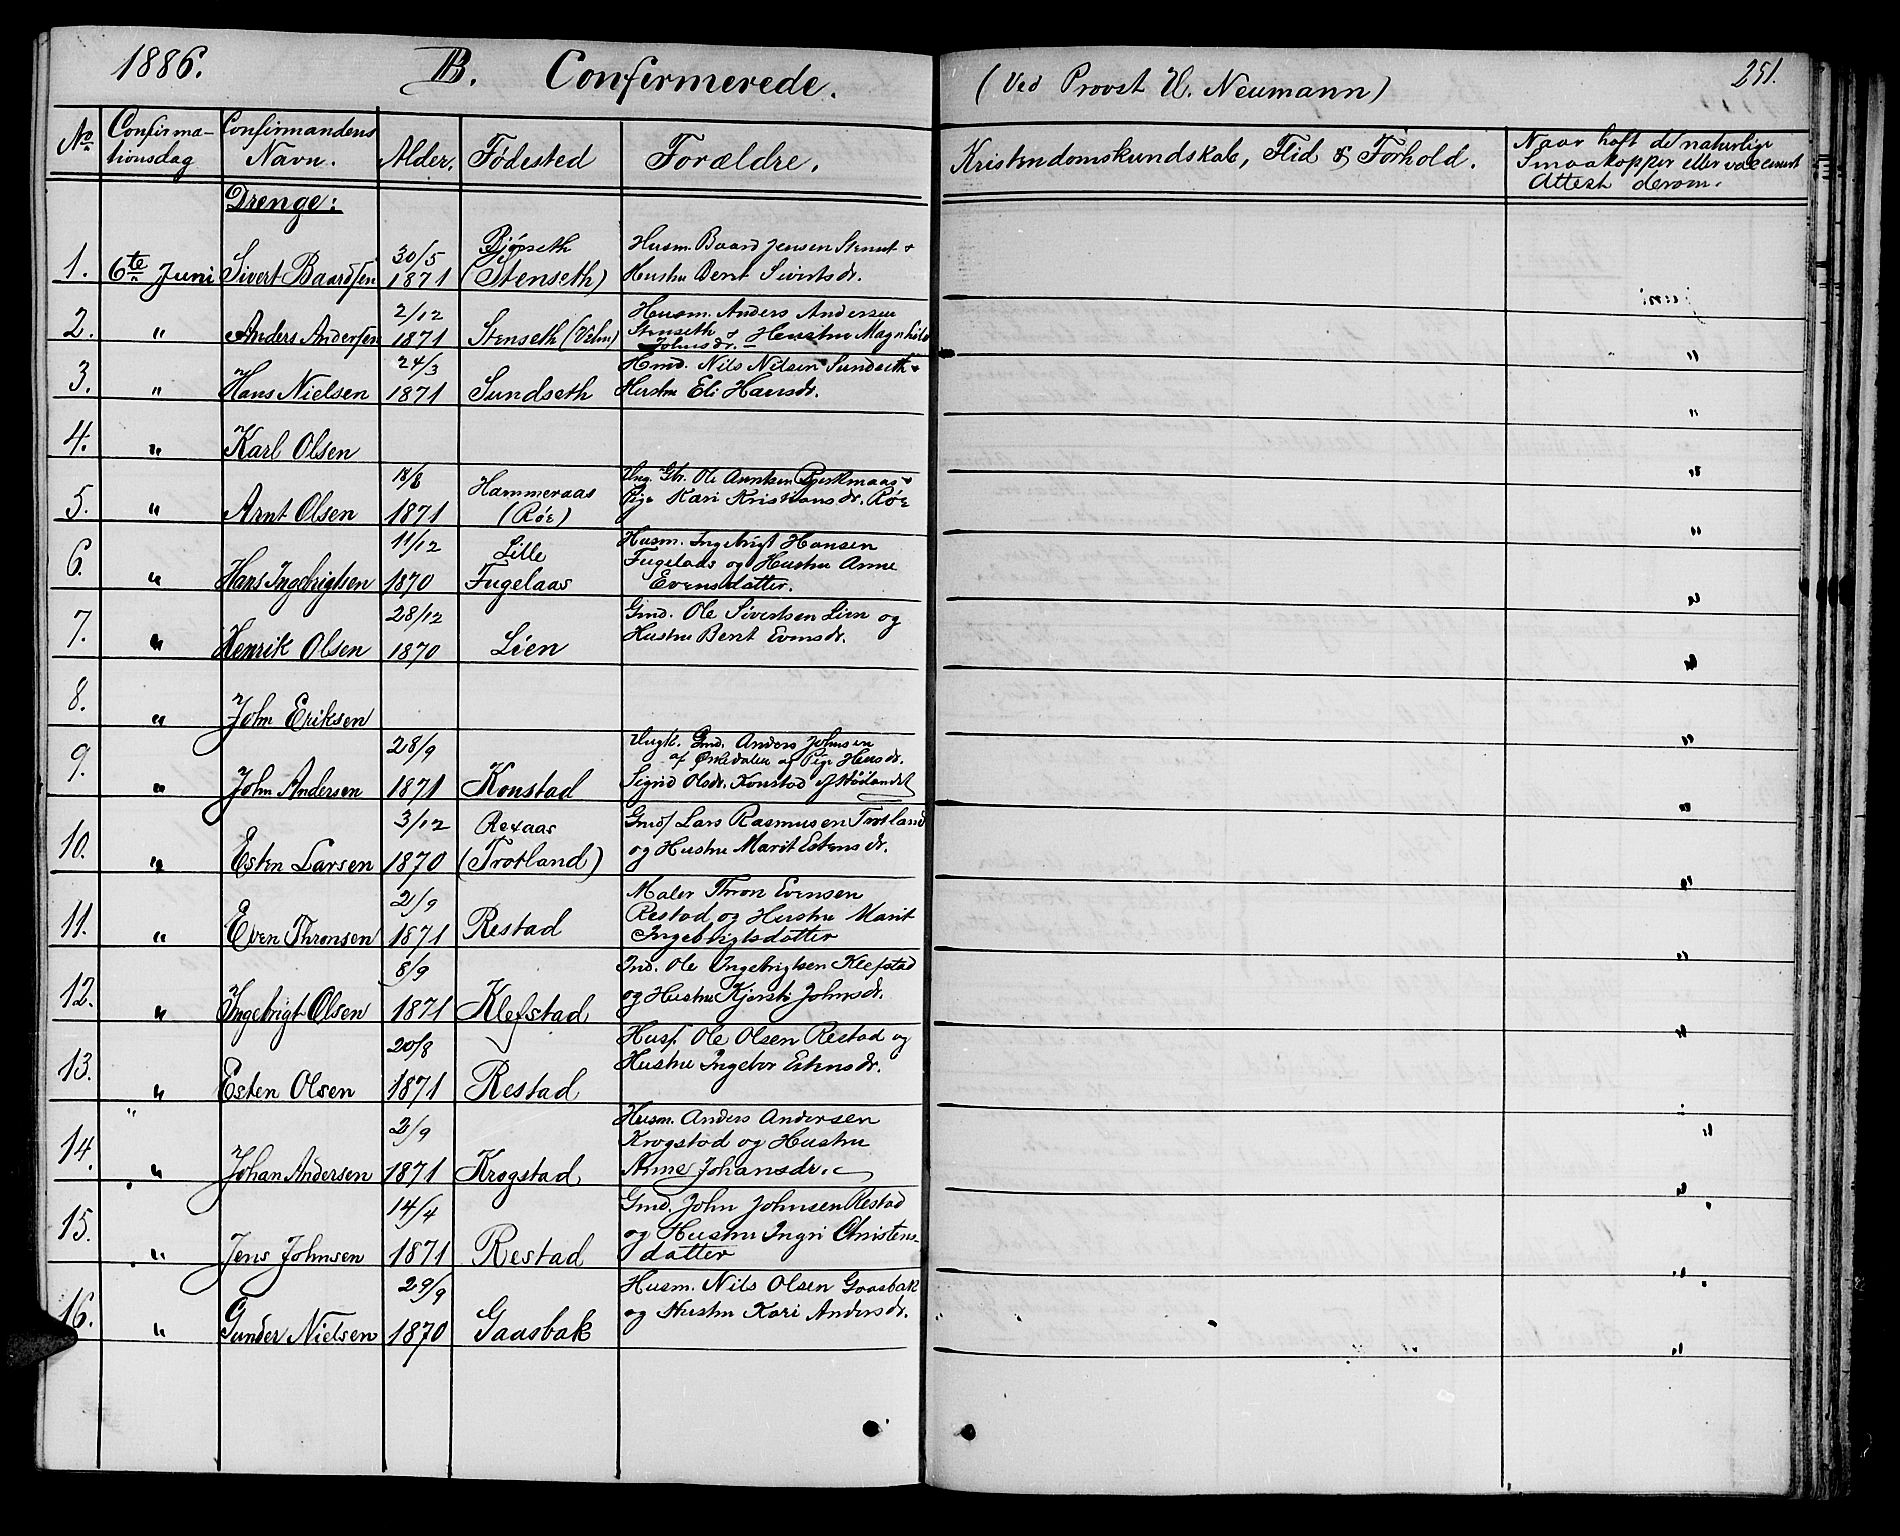 1886. B. Confirmerede. (Ved Provst H. Neumann) 251.
No Confirma-tionsdag Confirmandens Navn. Alder. Fødested Forældre. Kristendomskundskab, Flid & Forhold. Naar haft de naturlige Smaakopper eller vaccinert Attest derom.
Drenge:
1. 6te Juni Sivert Baardsen 30/5 1871 Bjørseth (Stenseth) Husm. Baard Jensen
Hustru Berit Sivertsdr.
2. " Anders Andersen 2/12 1871 Stenseth Husm. Anders Andersen
Stenseth & Hustru Magnhild
Johnsdr.
3. " Hans Nielsen 24/3 1871 Sundseth Gmd. Nils Nilsen Sundseth &
Hustru Eli Hansdr. "
4. " Karl Olsen "
5. " Arnt Olsen 1871 Hammeraas (Røe) Ung. Gbr. Ole Arntsen &
Pige Kari Kristiansdr. Røe "
6. " Hans Ingebrigtsen 11/12 1870 Lille Fugelaas Husm. Ingebrigt Hansen
Fugelaas og Hustru Anne
Evensdatter. "
7. " Henrik Olsen 28/12 1870 Lien Gmd. Ole Sivertsen Lien og
Hustru Berit Evensdr. "
8. " John Eriksen "
9. " John Andersen 28/9 1871 Konstad Ungk. Gmd. Anders Johnsen
af Ørkedalen
Sigrid Olsdr. Konstad af Høilandet "
10. " Esten Larsen 3/12 1870 Rexaas (Trotland) Lars Rasmusen Trotland
og Hustru Marit Estensdr. "
11. " Even Thronsen 2/9 1871 Restad Maler Thron Evensen
Restad og Hustru Marit
Ingebrigtsdatter "
12. " Ingebrigt Olsen 8/9 1871 Klefstad Ind. Ole Ingebrigtsen Klefstad
og Hustru Kjersti Johnsdr. "
13. " Esten Olsen 20/8 1871 Restad Ole Olsen Restad og
Hustru Ingebor Estensdr.
14. " Johan Andersen 2/9 1871 Krogstad Husm. Anders Andersen
Krogstad og Hustru
Anne Johansdr. "
15. " Jens Johnsen 14/4 1871 Restad Gmd. John Johnsen Restad
og Hustru Ingri Christens-
datter "
16. " Gunder Nielsen 29/9 1870 Gaasbak Husm. Nils Olsen Gaasbak
og Hustru Kari Andersdr. "